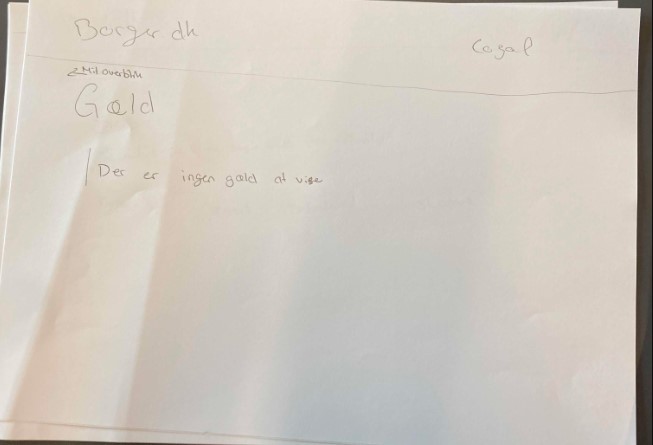 Borger dk
Logaf
< Mit overblik
Gæld
Der er ingen gæld at vise